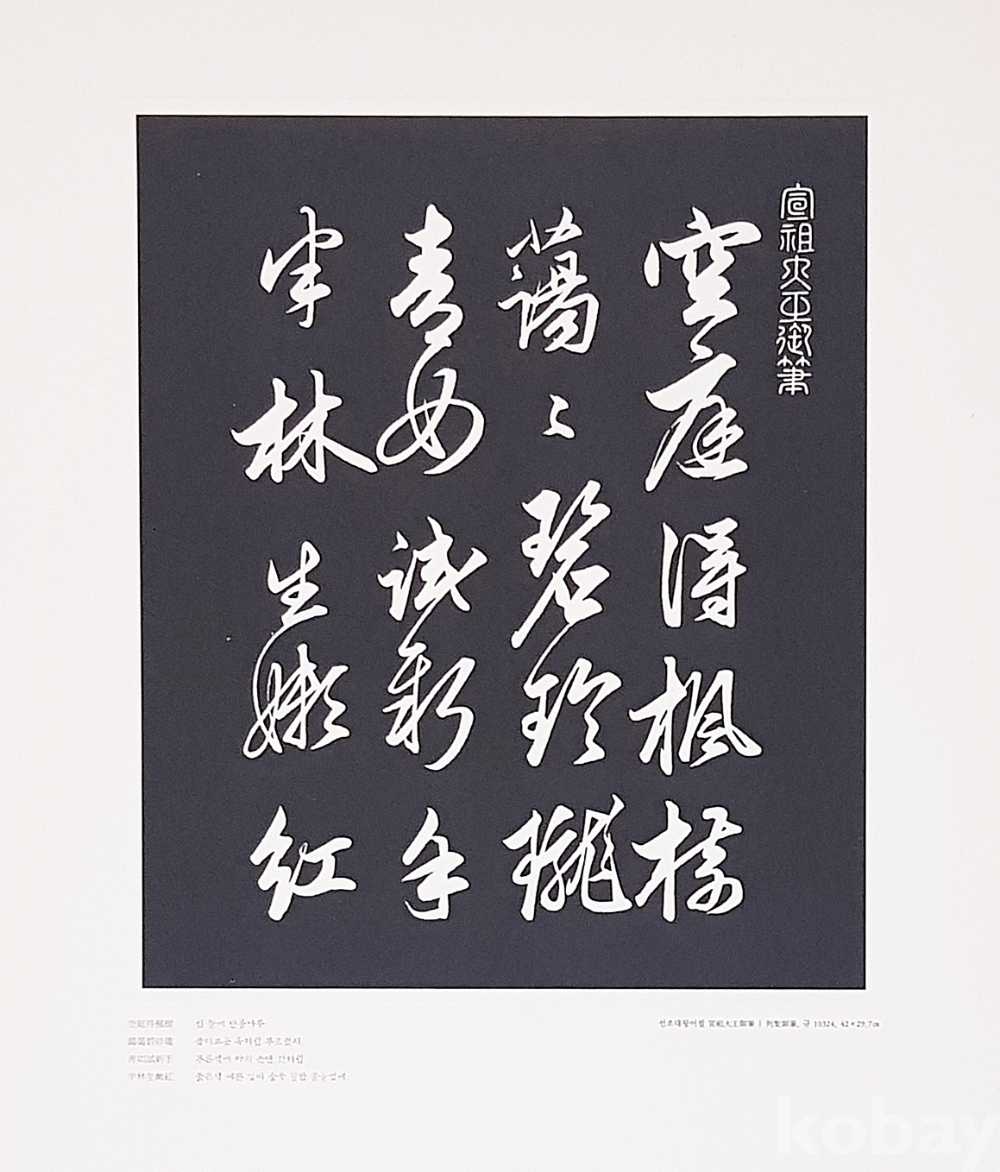 宣祖大王御筆
空庭得楓樹
藹〻碧玲瓏
青女試新手
半林生嫩紅
빈 뜰에 단풍나무
선조대왕어필 宣祖大王御筆 | 列聖御筆, 규 10324, 42×29.7cm
空庭得楓樹
青女試新手
半林生嫩紅
kobay